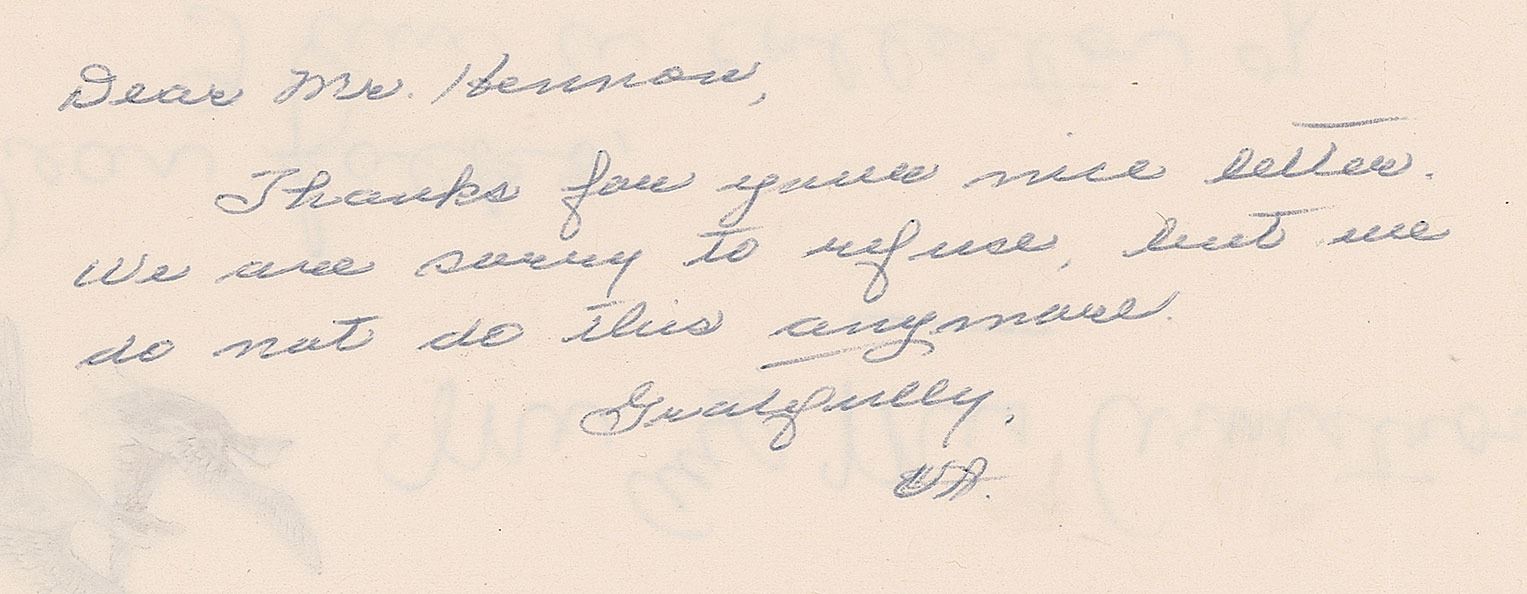 Dear Mr. Hennow,
Thanks for your nice letter.
We are sorry to refuse, but we
do not do this anymore.
Gratefully,